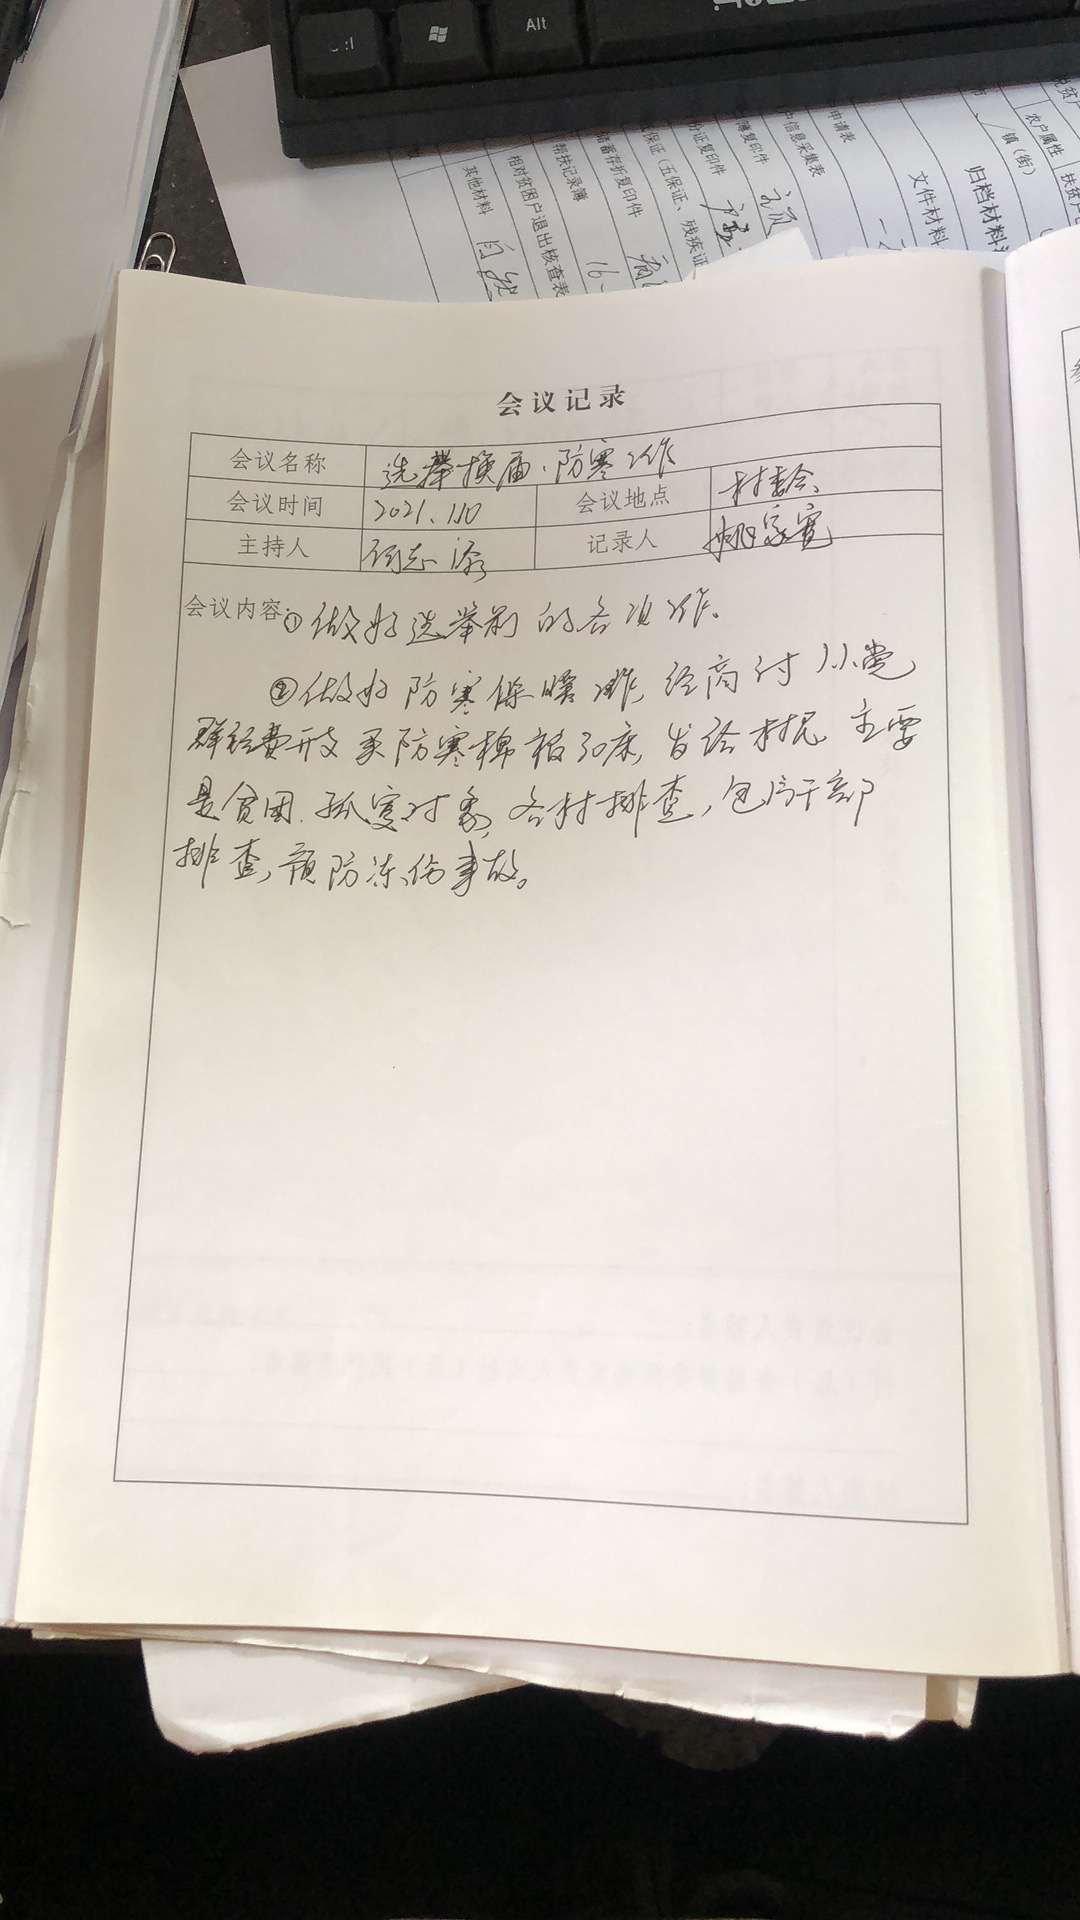 Alt
申请表
户信息采集表
薄复印件
份证复印件
保证(五保证、残疾证
储蓄存折复印件
帮扶记录簿
16、
相对贫困户退出核查表
其他材料
文件材料
归档材料
镇(街)
农户属性
会议记录
会议名称 选举换届、防寒工作
会议时间 2021.1.10 会议地点 村委会
主持人 何志添 记录人 姚家宽
会议内容:①做好选举前的各项工作.
②做好防寒保暖工作,经商讨从党
群经费开支买防寒棉被30床,发给村民 主要
是贫困.孤寡对象,各村排查,包片干部
排查,预防冻伤事故。